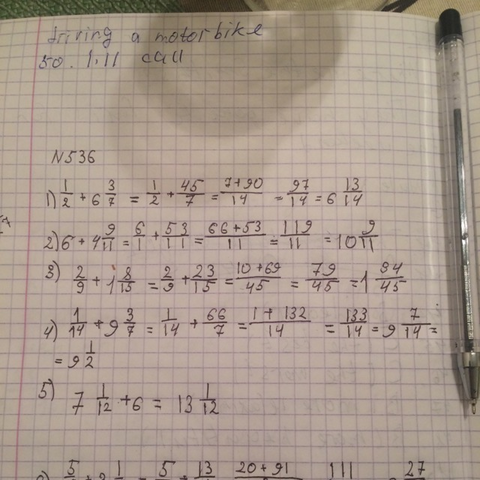 driving a motorbike
50. I'll call
N536
1) 1/2 + 6 3/7 = 1/2 + 45/7 = 7+90/14 = 97/14 = 6 13/14
2) 6 + 4 9/11 = 6/1 + 53/11 = 66+53/11 = 119/11 = 10 9/11
3) 2/9 + 1 8/15 = 2/9 + 23/15 = 10+69/45 = 79/45 = 1 94/45
4) 1/14 + 9 3/7 = 1/14 + 66/7 = 1+132/14 = 133/14 = 9 7/14 =
= 9 1/2
5) 7 1/12 + 6 = 13 1/12
20+91 111 27